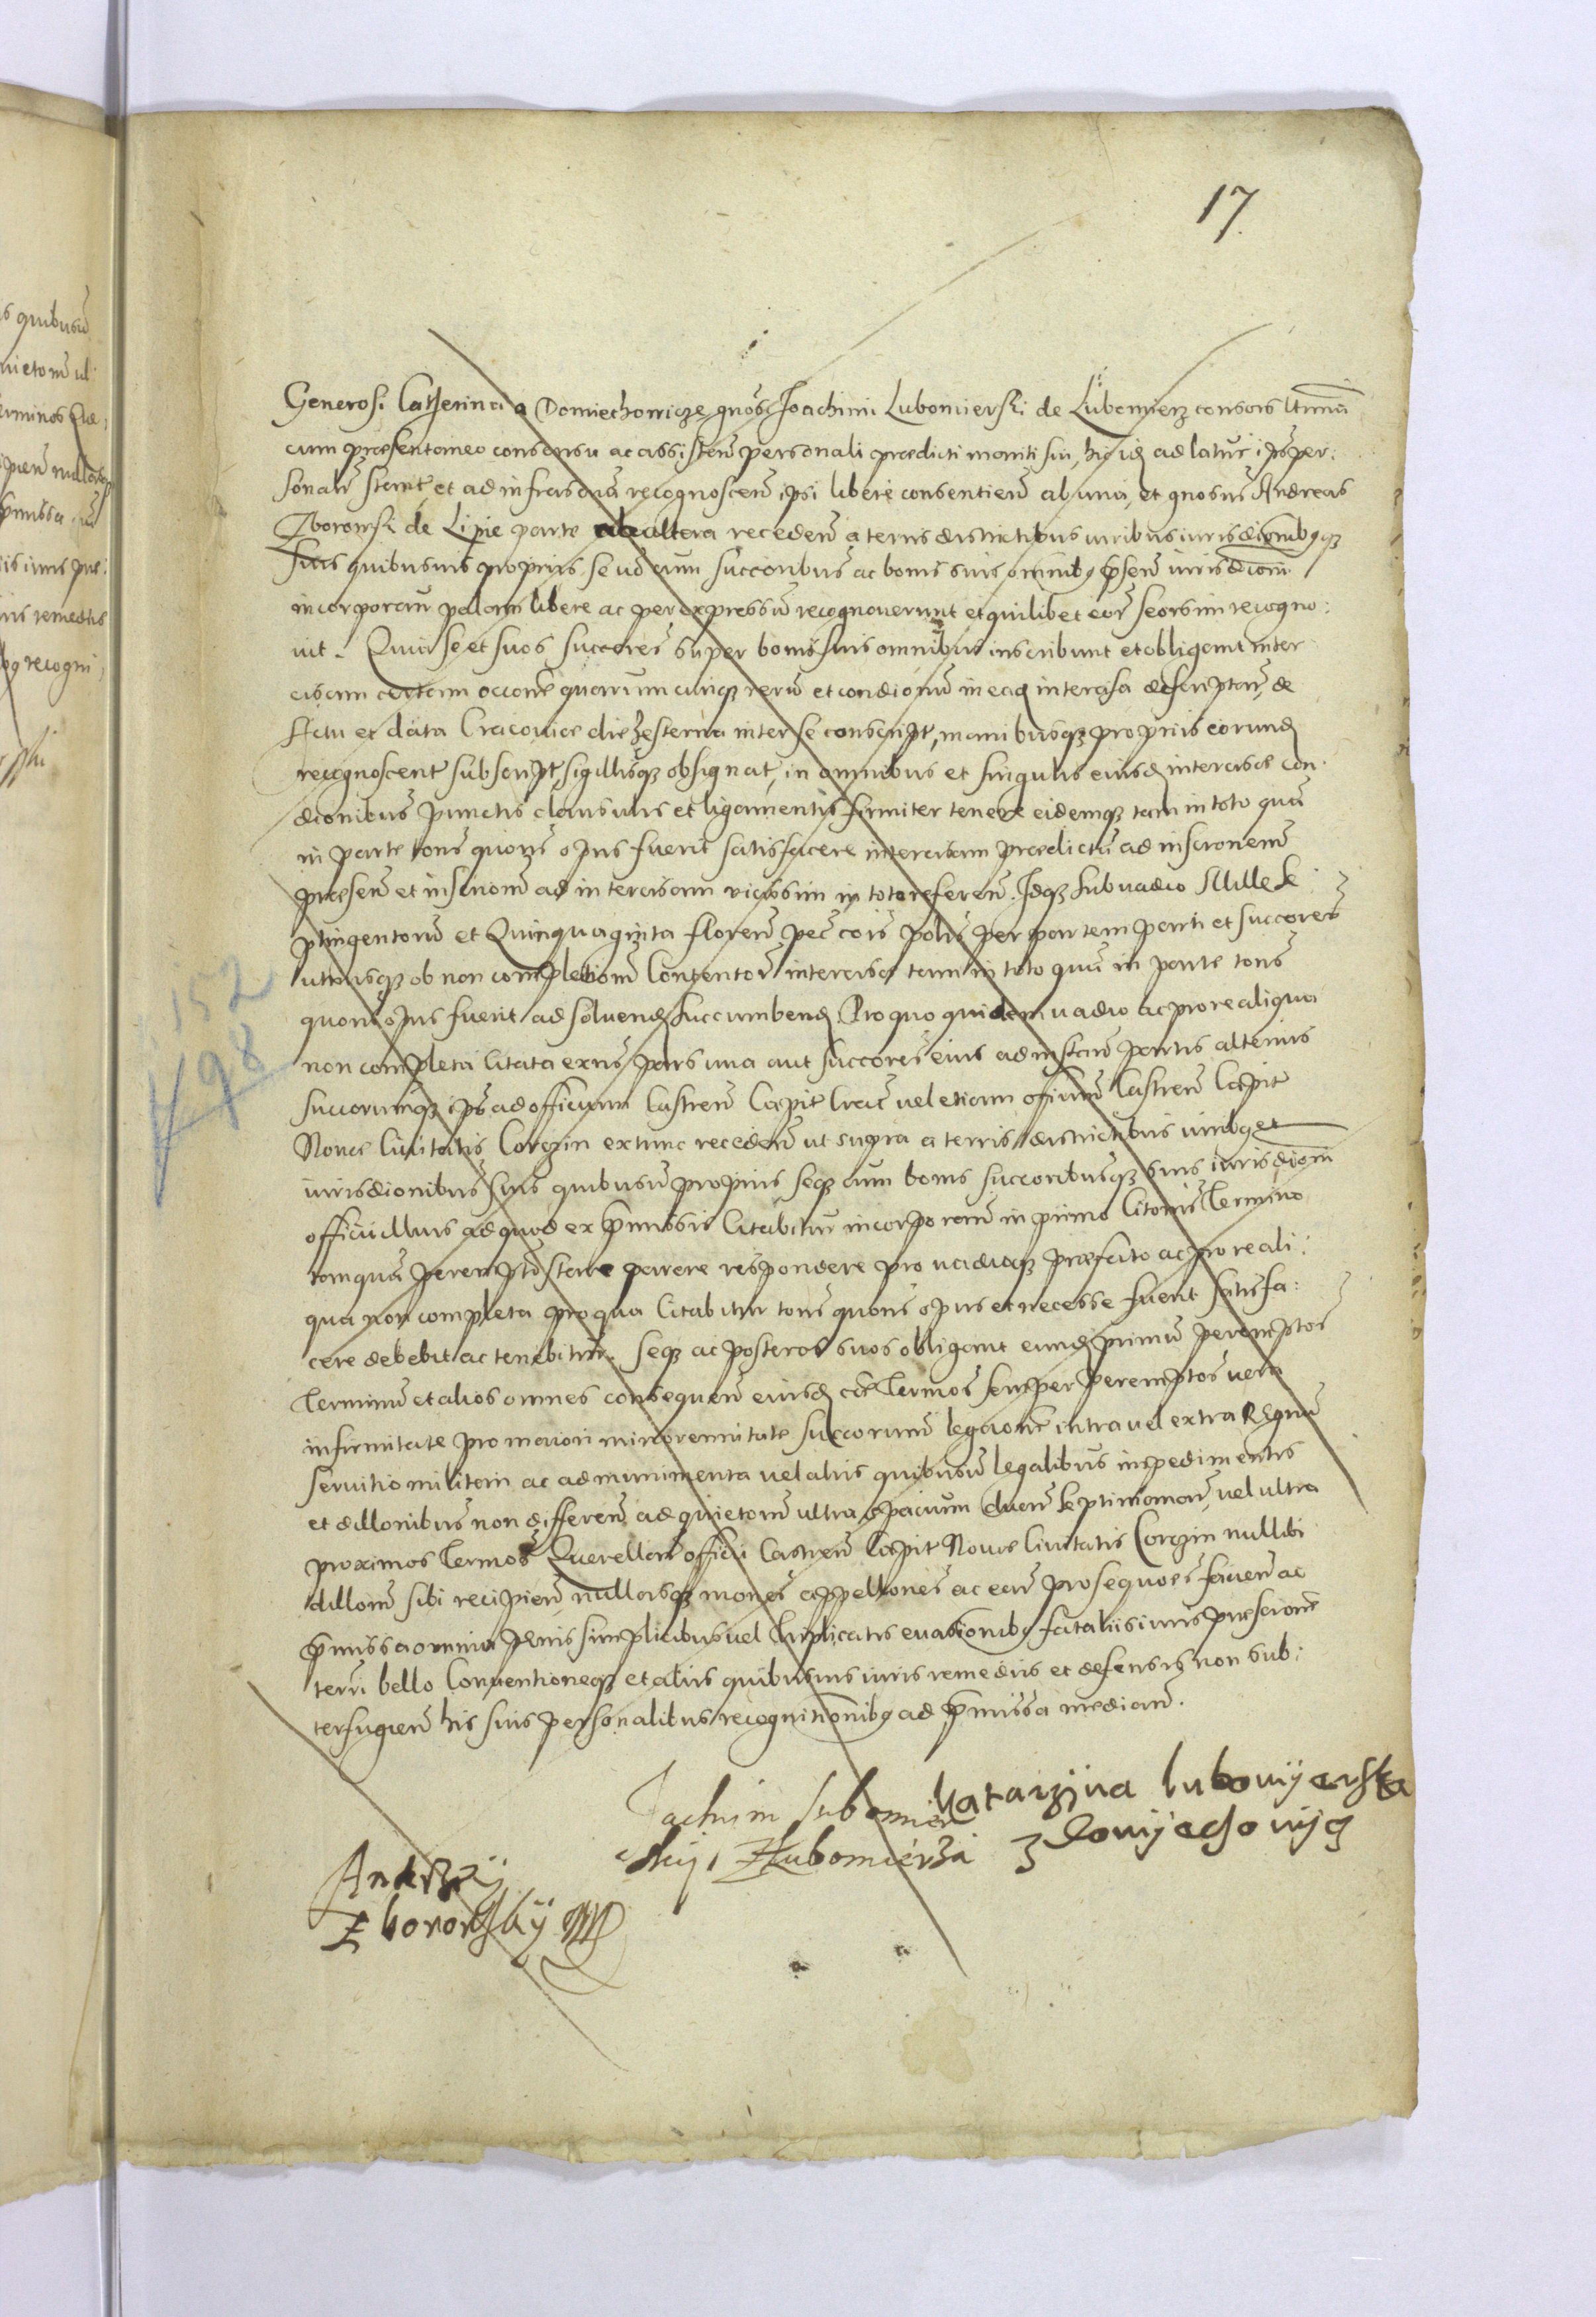 17
Generosi Catherina a Domiechowicze gnosi Joachimi Lubomierski de Lubomierz consors ltima
cum præsentaneo consensu ac assisten personali prædicti mariti sui, hic id ad latus ips per:
sonalr stante et ad infrascrã recognoscen ipsi libere consentien ab una, et gnosus Andreas
Zborowski de Lipie parte ab altera receden a terris districtibus iuribus iurisdionibq;
suis quibusuis proprijs, se vo cum succoribus ac bonis suis omnibq pñsen iurisdioni
incorporan palam libere ac per expressum recognouerunt et quilibet eor seorsim recogno:
uit. Quia se et suos succores super bonis suis omnibus inscribunt et obligant inter
cisam certam occone quarumcunq; reru et condionu in ead intercisa descriptar, de
Actu et data Cracouiæ die hesterna inter se conscript, manibusq; proprijs eorund
recognoscent subscript, sigillisq; obsignat, in omnibus et singulis eiusd intercisæ con
dionibus punctis clausulis et ligamentis firmiter tenere eidemq; tam in toto quã
in parte tons quons opus fuerit satisfacere intercisam prædictã ad inscronem
præsen et inscronem ad intercisam vicissim in toto referen. Idq; sub vadio Mille Se
ptingentoru et Quinquaginta floren pec cois polis per partem parti et succores
utriusq; ob non completionem contentor intercisæ tam in toto quã in parte tons
quons opus fuerit ad soluend succumbend. Pro quo quidem vadio ac pro re aliqua
non completa citata exns pars una aut succores eius ad instan partis alterius
succorumq; ips ad officium Castren Capit Crac vel etiam offium Castren Capit
Nouæ Ciuitatis Corczin extunc receden ut supra a terris districtibus iuribq et
iurisdionibus suis quibusuis proprijs, seq; cum bonis succoribusq; suis iurisdioni
officij illius ad quod ex pmissis citabitur incorporan in primo citonis termino
tamquã perempto stare parere respondere pro vadioq; præfato ac pro re ali:
qua non completa pro qua citabitur tons quons opus et necesse fuerit satisfa:
cere debebit ac tenebitur. Seq; ac posteros suos obligant eund primu peremptor
terminu et alios omnes consequen eiusd cæ termos semper peremptor vera
infirmitate pro maiori minorennitate succorum legaone intra vel extra Regnu
seruitio militari ac ad munimenta vel alijs quibusuis legalibus impedimentis
et dillonibus non differen ad quietonem ultra spacium duar septimanar, vel ultra
proximos termos Querellar officij Castren Capit Nouæ Ciuitatis Corczin nullibi
dillonem sibi recipien, nullasq; mones appellones ac ear prosequoes facien ac
pmissa omnia penis simplicibus vel triplicatis euasionibq fatalijs iuris præscrione
terri bello Conuentioneq; et alijs quibusuis iuris remedijs et defensis non sub:
terfugien his suis personalibus recognitionibq ad pmissa median.
152
498
Jachim Lubomier
skij Z Lubomierza
Katarzÿna lubomÿerska
z Domÿechowÿcz
Andrzÿ
Zborowskÿ